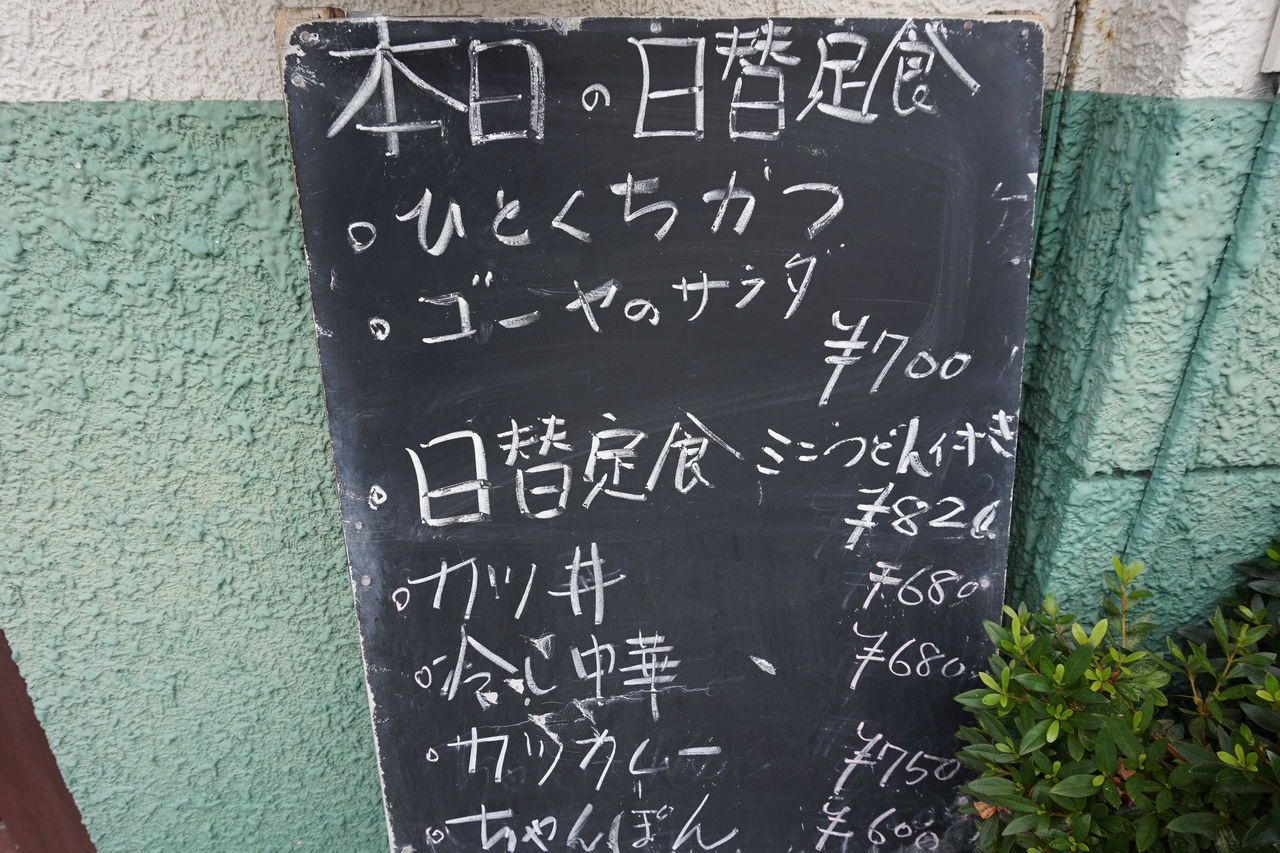 本日の日替定食
○ ひとくちガツ
○ ゴーヤのサラダ
¥700
○ 日替定食 ミニうどん付き
¥820
○ カツ丼 ¥680
○ 冷し中華 ¥680
○ カツカレー ¥750
○ ちゃんぽん ¥600